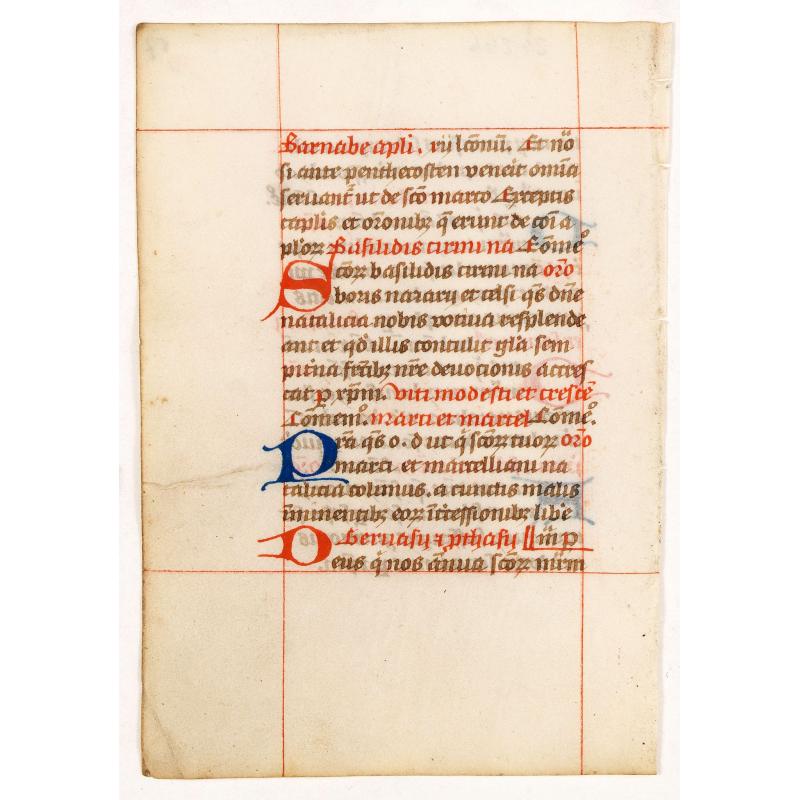 Barnabe apłi. vii lc̄onū. Et nō
si ante penthecosten venēit om̄ia
seruant̄ ut de sc̄o marco Exceptis
cap̄lis et or̄onibꝫ q̄ erunt de cōi a
pl'oꝝ Basilidis cirini na Cōmeᵒ
Scōꝝ basilidis cirini na or̄o
boris nazarij et celsi q̄s dn̄e
natalicia nobis votiua resplende
ant et qd̄ illis contulit gl̄a sem
pit̄na fructibꝫ nr̄e deuocionis accres
cat ꝑ xp̄m. Viti modesti et crescē
Cōmemᵒ. marci et marcel Cōmeᵒ.
Pr̄a q̄s o. d ut q̄ scōꝝ tuoꝝ or̄o
marci et marcelliani na
talicia colimus. a cunctis malis
īminentibꝫ eoꝝ īt̄cessionibꝫ lib̄e
Geruasij ⁊ ꝓthasij m̄ ꝑ
Deus q̄ nos ān̄ua scōꝝ mr̄m